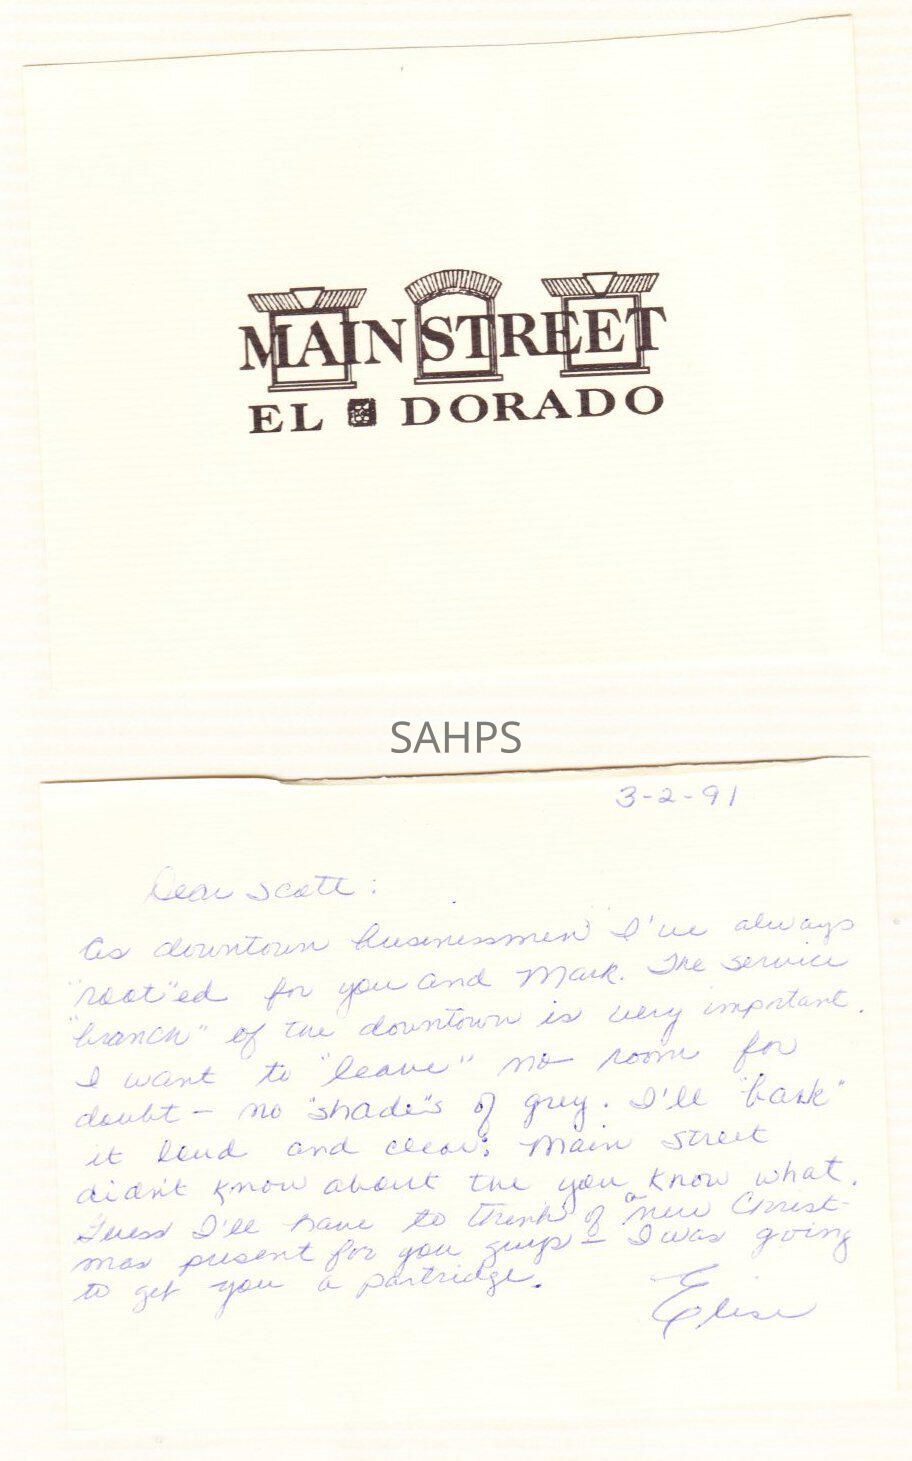 MAIN STREET
EL DORADO
SAHPS
3-2-91
Dear Scott:
As downtown businessmen I've always
"root"ed for you and Mark. The service
"branch" of the downtown is very important.
I want to "leave" no room for
doubt - no "shade"s of grey. I'll "bark"
it loud and clear: Main Street
didn't know about the you know what.
Guess I'll have to think of a new Christ-
mas present for you guys - I was going
to get you a partridge.
Elise